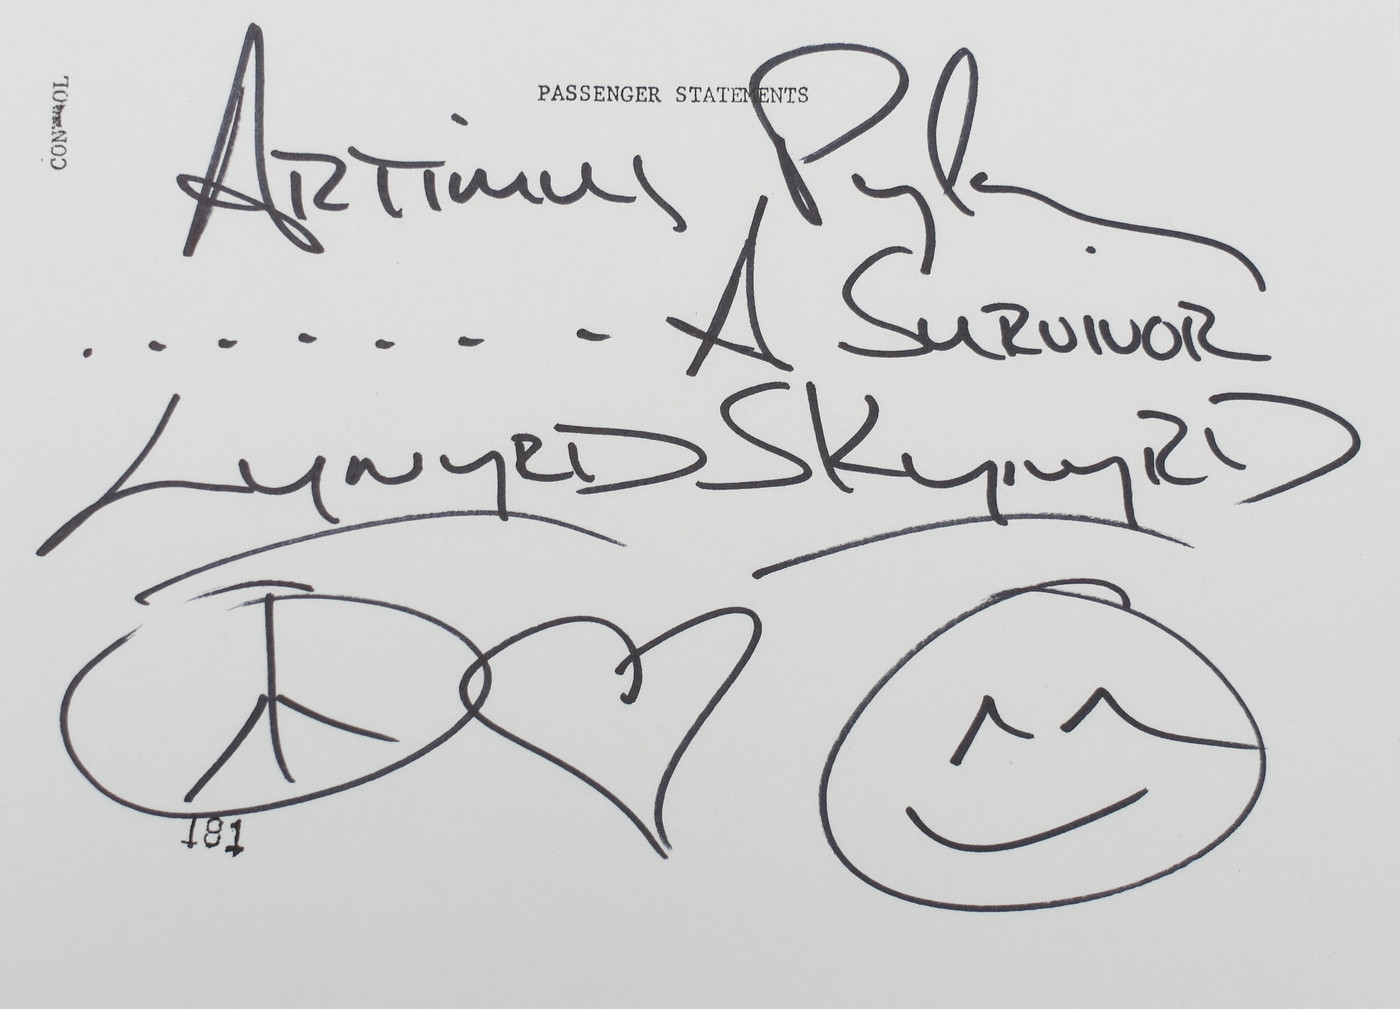 PASSENGER STATEMENTS
CONTROL
ARTIMUS Pyle
. - - - - - - - A SURVIVOR
LYNYRD SKYNYRD
181